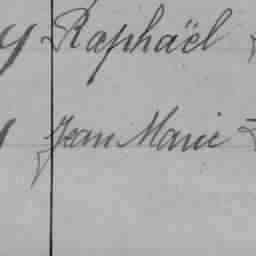 Raphaël
Jean Marie